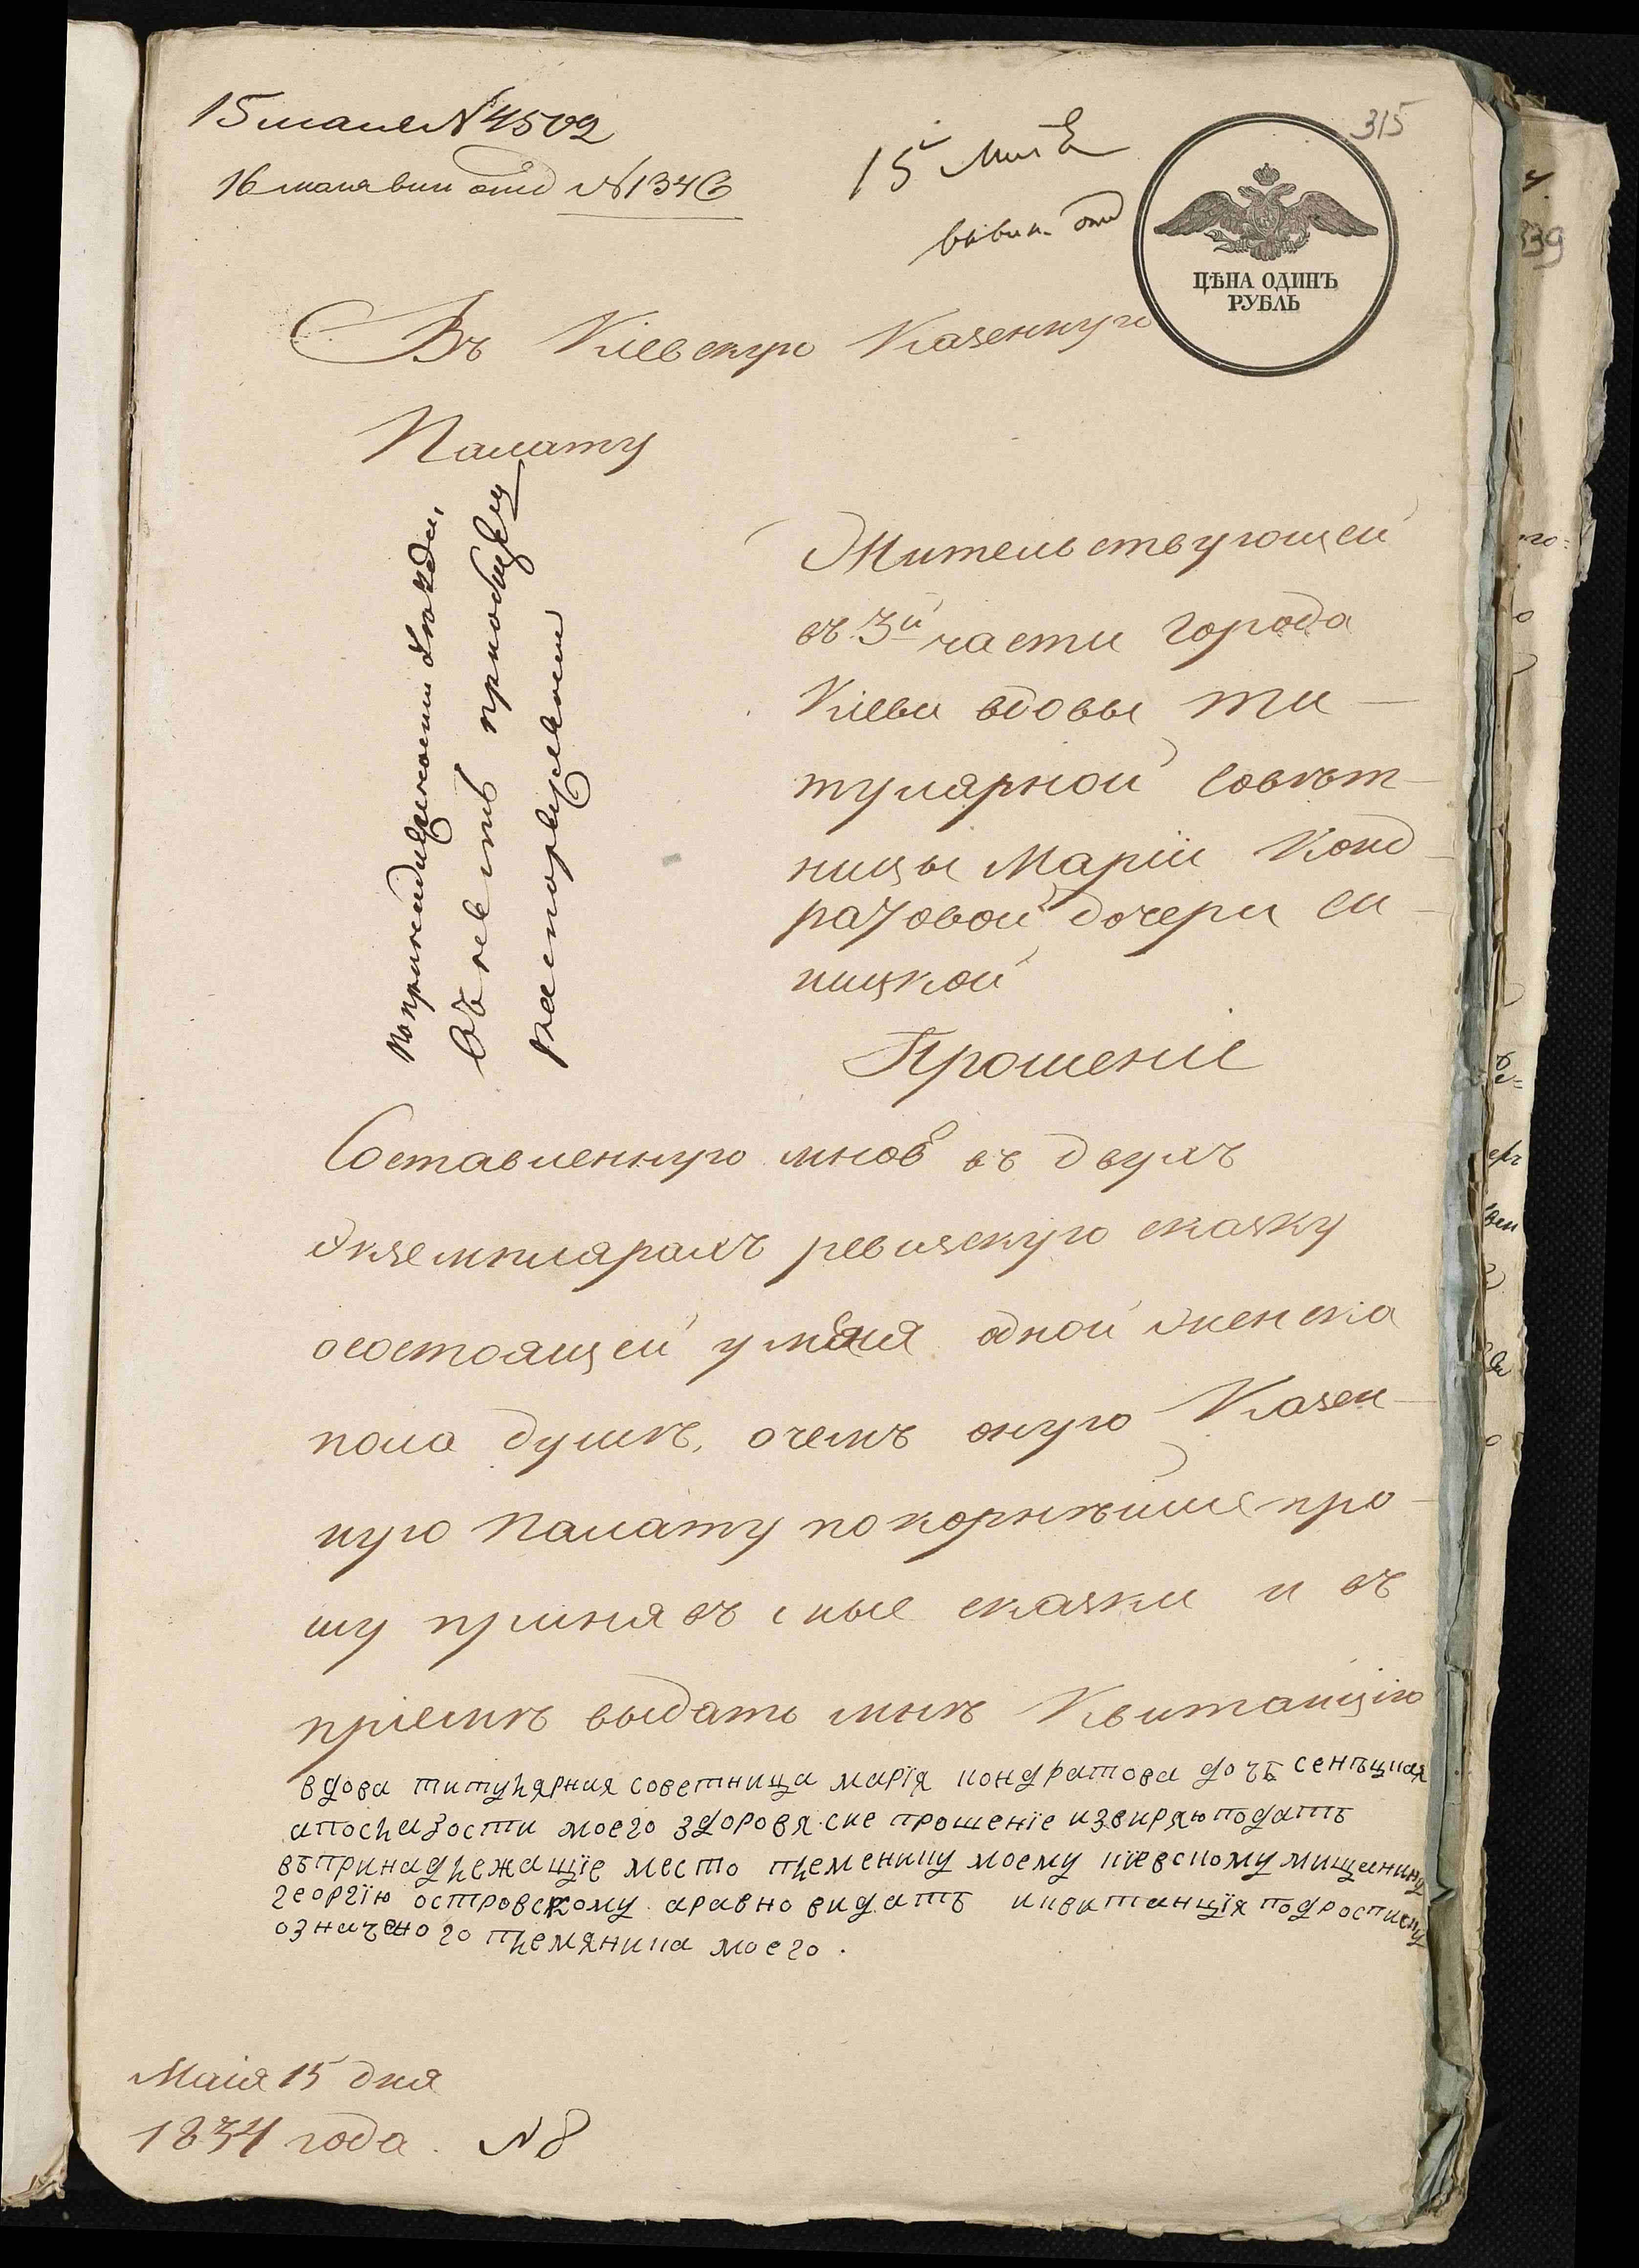 15 мая N 4502
16 мая в ви отд N 1346
15 мая
в ви. отд
315
ЦѢНА ОДИНЪ
РУБЛЬ
Въ Кіевскую Казенную
Палату
Жительствующей
въ 3й части города
Кіева вдовы ти-
тулярной совѣт-
ницы Маріи Конд-
ратовой дочери си-
ницкой
Прошеніе
въ ревизіи приобщ
распоряженіи
Составленную мною въ двухъ
экземплярахъ ревизскую сказку
осостоящей у меня одной женска
пола душѣ, очемъ оную Казен-
ную Палату покорнѣйше про-
шу принявъ оные сказки и въ
пріемѣ выдать мнѣ Квитанцію
вдова титулярная советница марїя кондратова дочь сенѣцкая
апослазости моего здоровя сие прошенїе извиряю подать
въпринадлежащїе место племенику моему кїевскому мищанину
георгїю островскому аравно видать квитанцїя подросписку
означеного племяника моего.
Маія 15 дня
1834 года. N 8